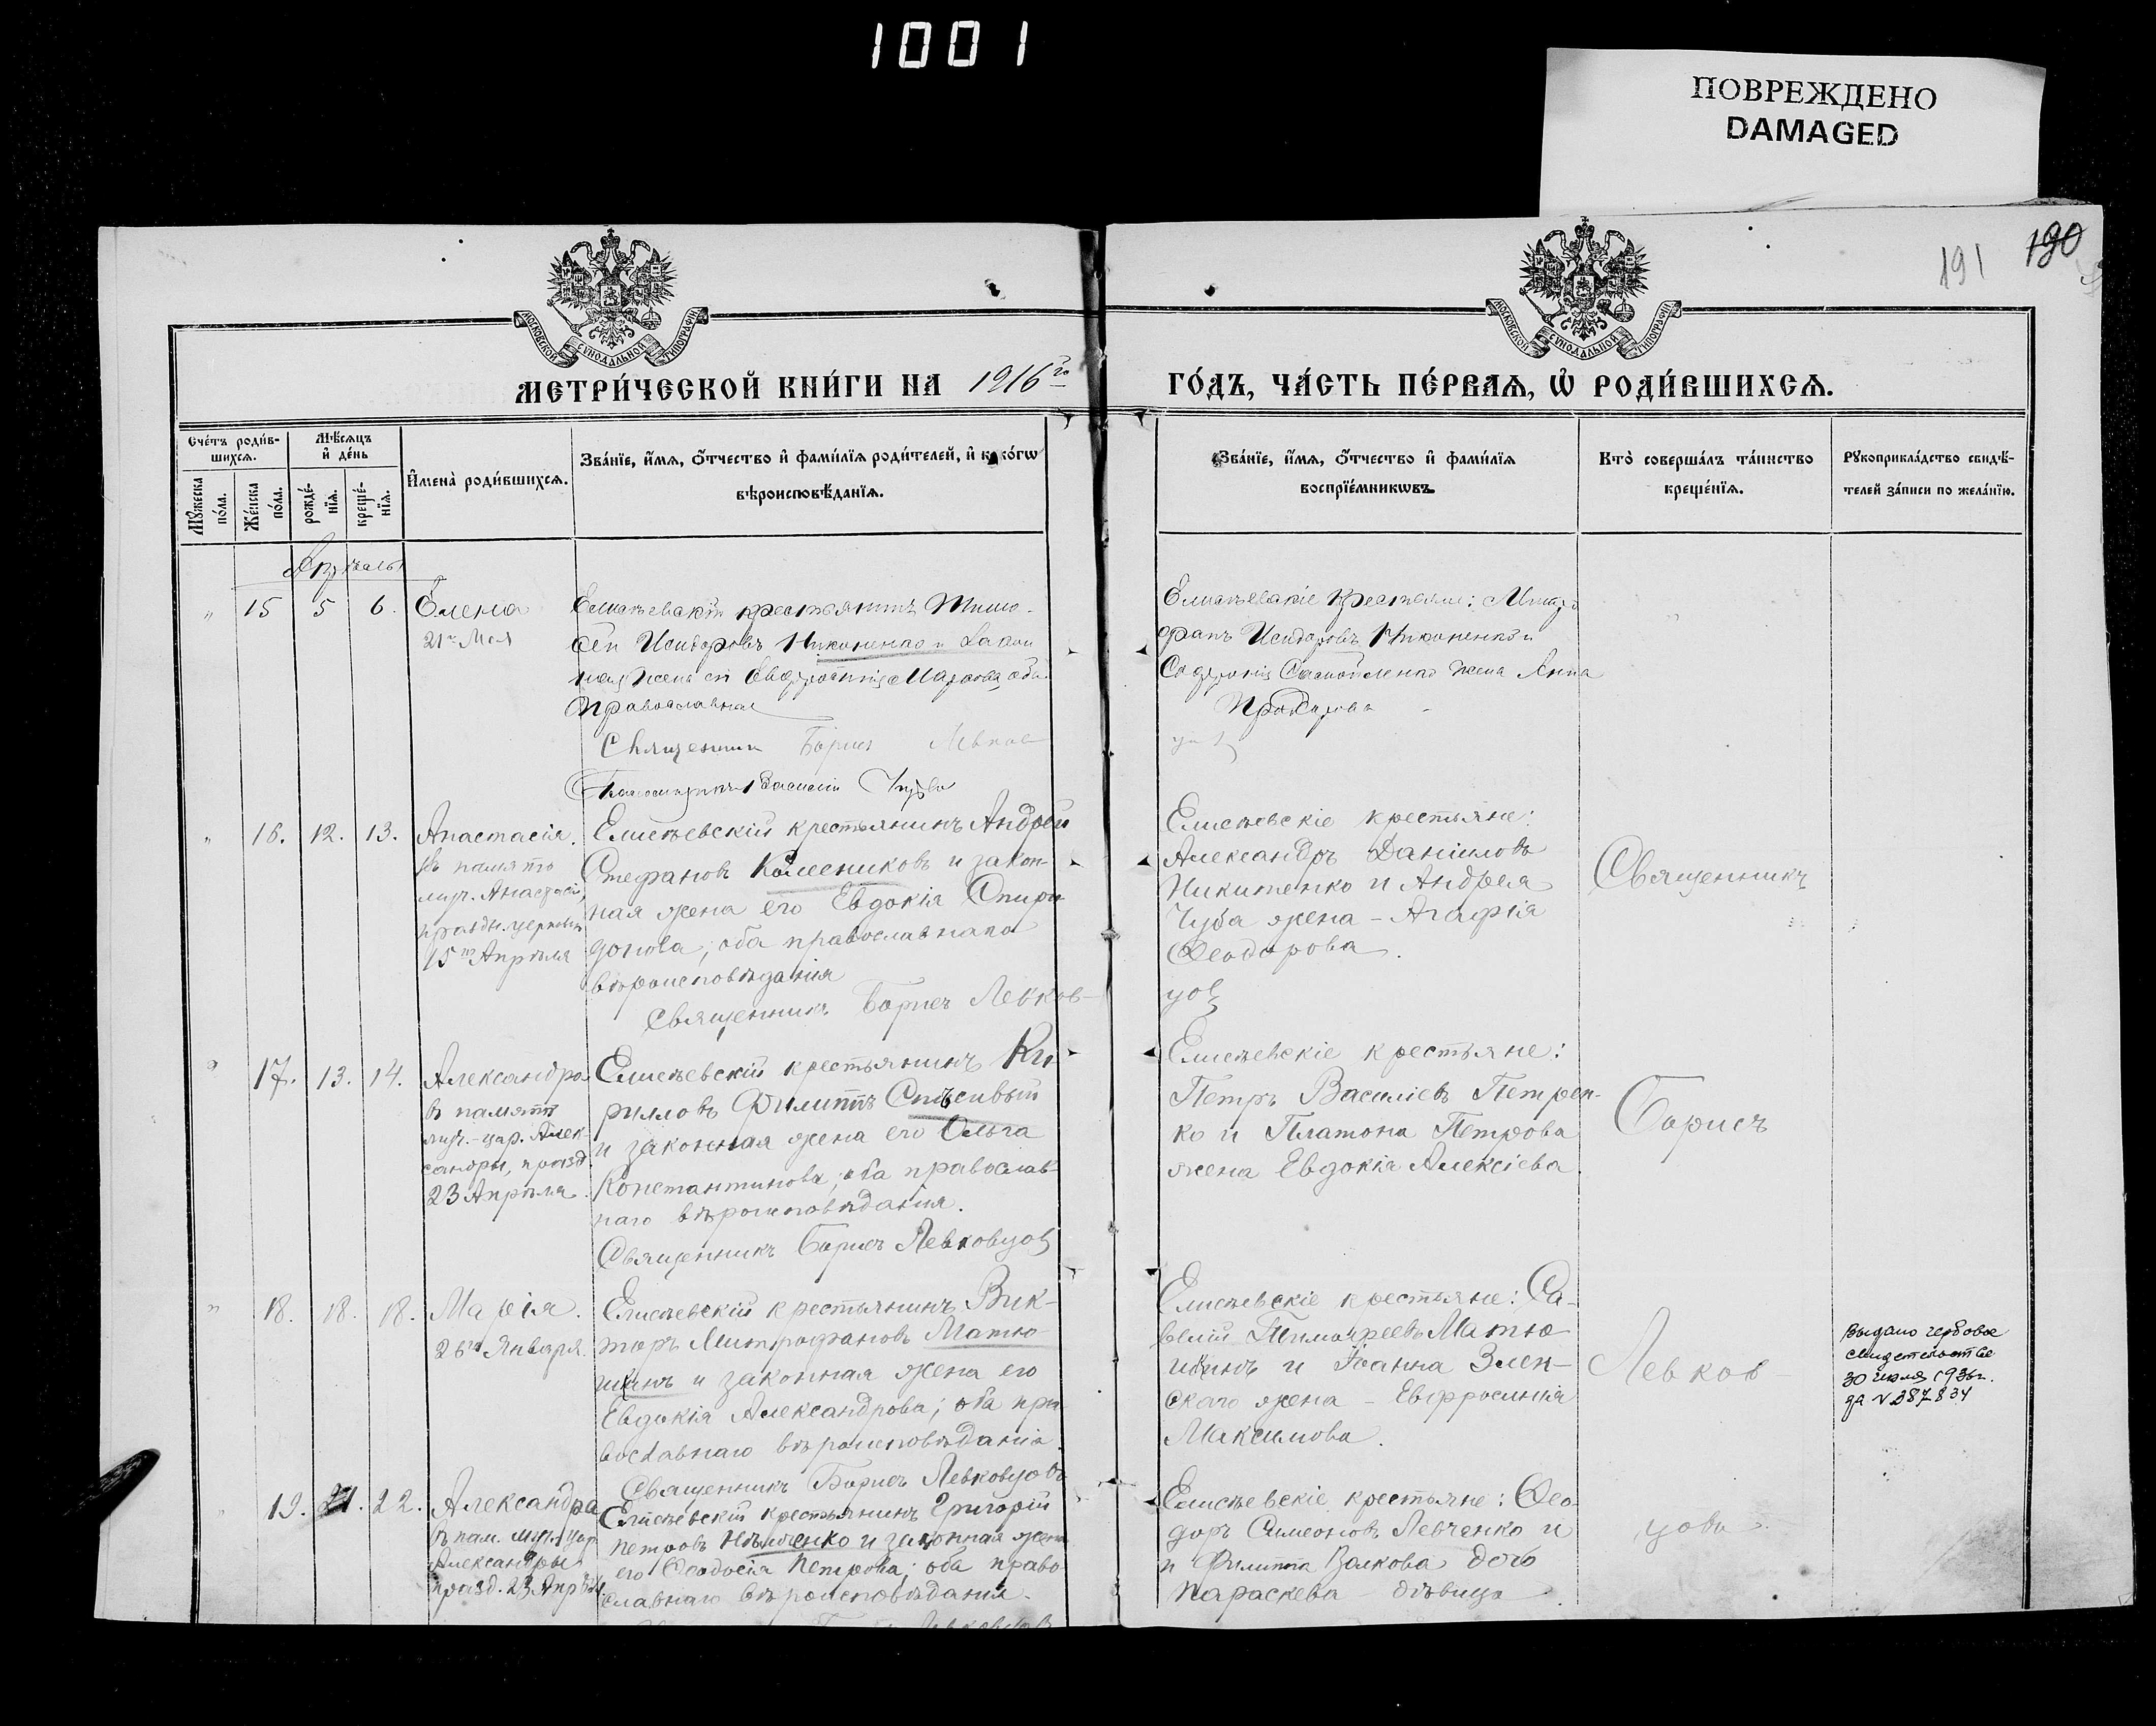 1001
ПОВРЕЖДЕНО
DAMAGED
191 190
МОСКОВСКОЙ СѴНОДАЛЬНОЙ ТИПОГРАФІИ
МОСКОВСКОЙ СѴНОДАЛЬНОЙ ТИПОГРАФІИ
МЕТРИ́ЧЕСКОЙ КНИ́ГИ НА 1916 го
ГО́ДЪ, ЧА́СТЬ ПЕ́РВАѦ, Ѡ҆ РОДИ́ВШИХСѦ.
Сче́тъ роди́в-
шихсѧ.
Мꙋ́жеска по́ла.
Же́нска по́ла.
Мѣ́сѧцъ
и҆ де́нь
рожде́-
нїѧ.
креще́-
нїѧ.
И҆мена̀ роди́вшихсѧ.
Зва́нїе, и҆́мѧ, ѻ҆́тчество и҆ фами́лїѧ роди́телей, и҆ како́гѡ
вѣроисповѣ́данїѧ.
Зва́нїе, и҆́мѧ, ѻ҆́тчество и҆ фами́лїѧ
воспрїе́мникѡвъ.
Кто̀ соверша́лъ та́инство
креще́нїѧ.
Рꙋкоприкла́дство свидѣ́-
телей за́писи по жела́нїю.
Апрѣль
" 15 5 6.
Елена
21го Мая
Елисѣевскій крестьянинъ Тимо-
фей Исидоровъ Никоненко и закон
ная жена его Евфросинія Маркова, оба
Православные
Священникъ Борисъ Левков
Псаломщикъ Василій
Елисѣевскіе крестьяне: Митро
фанъ Исидоровъ Никоненко и
Софронія Самойленко жена Анна
" 16. 12. 13.
Анастасія.
въ память
муч. Анастасіи,
праздн. церковью
15го Апрѣля
Елисѣевскій крестьянинъ Андрей
Стефановъ Колесниковъ и закон-
ная жена его Евдокія Спири
донова, оба православнаго
вѣроисповѣданія
Священникъ Борисъ Левков-
Елисѣевскіе крестьяне:
Александръ Даниловъ
Никитенко и Андрея
Чуба жена - Агафія
Ѳеодорова.
цов
Священникъ
" 17. 13. 14.
Александра
въ память
муч.-цар. Алек-
сандры, празд.
23 Апрѣля.
Елисѣевскій крестьянинъ Ки-
рилловъ Филиппъ Спѣсивый
и законная жена его Ольга
Константинова, оба православ-
наго вѣроисповѣданія.
Священникъ Борисъ Левковцов
Елисѣевскіе крестьяне:
Петръ Василіевъ Петрен-
ко и Платона Петрова
жена Евдокія Алексіева.
Борисъ
" 18. 18. 18.
Марія.
26го Января.
Елисѣевскій крестьянинъ Вик-
торъ Митрофановъ Матю-
шинъ и законная жена его
Евдокія Александрова; оба пра
вославнаго вѣроисповѣданія.
Священникъ Борисъ Левковцовъ
Елисѣевскіе крестьяне: Са-
велій Тимоѳеевъ Матю
шинъ и Іоанна Змен-
скаго жена - Евфросинія
Максимова.
Левков-
Выдано гербовое
свидетельство
30 июля 1936 г.
за N 387834
19. 21. 22.
Александра
въ пам. муч. цар.
Александры
празд. 23 Апрѣля.
Елисѣевскій крестьянинъ Григорій
Петровъ Ильченко и законная жена
его Ѳеодосія Петрова; оба право-
славнаго вѣроисповѣданія.
Елисѣевскіе крестьяне: Ѳео-
доръ Симеоновъ Левченко и
и Филиппа Волкова дочь
Параскева дѣвица.
цовъ.